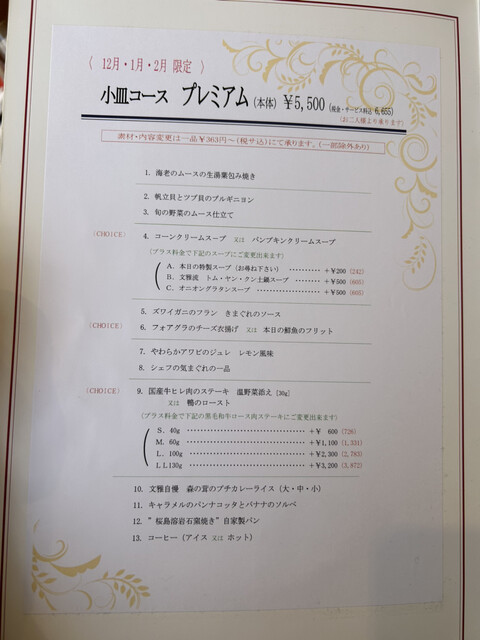 〈 12月・1月・2月 限定 〉
小皿コース プレミアム (本体) ¥5,500 (税金・サービス料込 6,655)
(お二人様より承ります)
素材・内容変更は一品¥363円~(税サ込)にて承ります。(一部除外あり)
1. 海老のムースの生湯葉包み焼き
2. 帆立貝とツブ貝のブルギニヨン
3. 旬の野菜のムース仕立て
(CHOICE) 4. コーンクリームスープ 又は パンプキンクリームスープ
(プラス料金で下記のスープにご変更出来ます)
A. 本日の特製スープ(お尋ね下さい) ………… +¥200 (242)
B. 文雅流 トム・ヤン・クン土鍋スープ ……… +¥500 (605)
C. オニオングラタンスープ ……………………… +¥500 (605)
5. ズワイガニのフラン きまぐれのソース
(CHOICE) 6. フォアグラのチーズ衣揚げ 又は 本日の鮮魚のフリット
7. やわらかアワビのジュレ レモン風味
8. シェフの気まぐれの一品
(CHOICE) 9. 国産牛ヒレ肉のステーキ 温野菜添え [30g]
又は 鴨のロースト
(プラス料金で下記の黒毛和牛ロース肉ステーキにご変更出来ます)
S. 40g ……………………………… +¥ 600 (726)
M. 60g ……………………………… +¥1,100 (1,331)
L. 100g ……………………………… +¥2,300 (2,783)
LL130g ……………………………… +¥3,200 (3,872)
10. 文雅自慢 森の茸のプチカレーライス(大・中・小)
11. キャラメルのパンナコッタとバナナのソルベ
12. ”桜島溶岩石窯焼き”自家製パン
13. コーヒー(アイス 又は ホット)